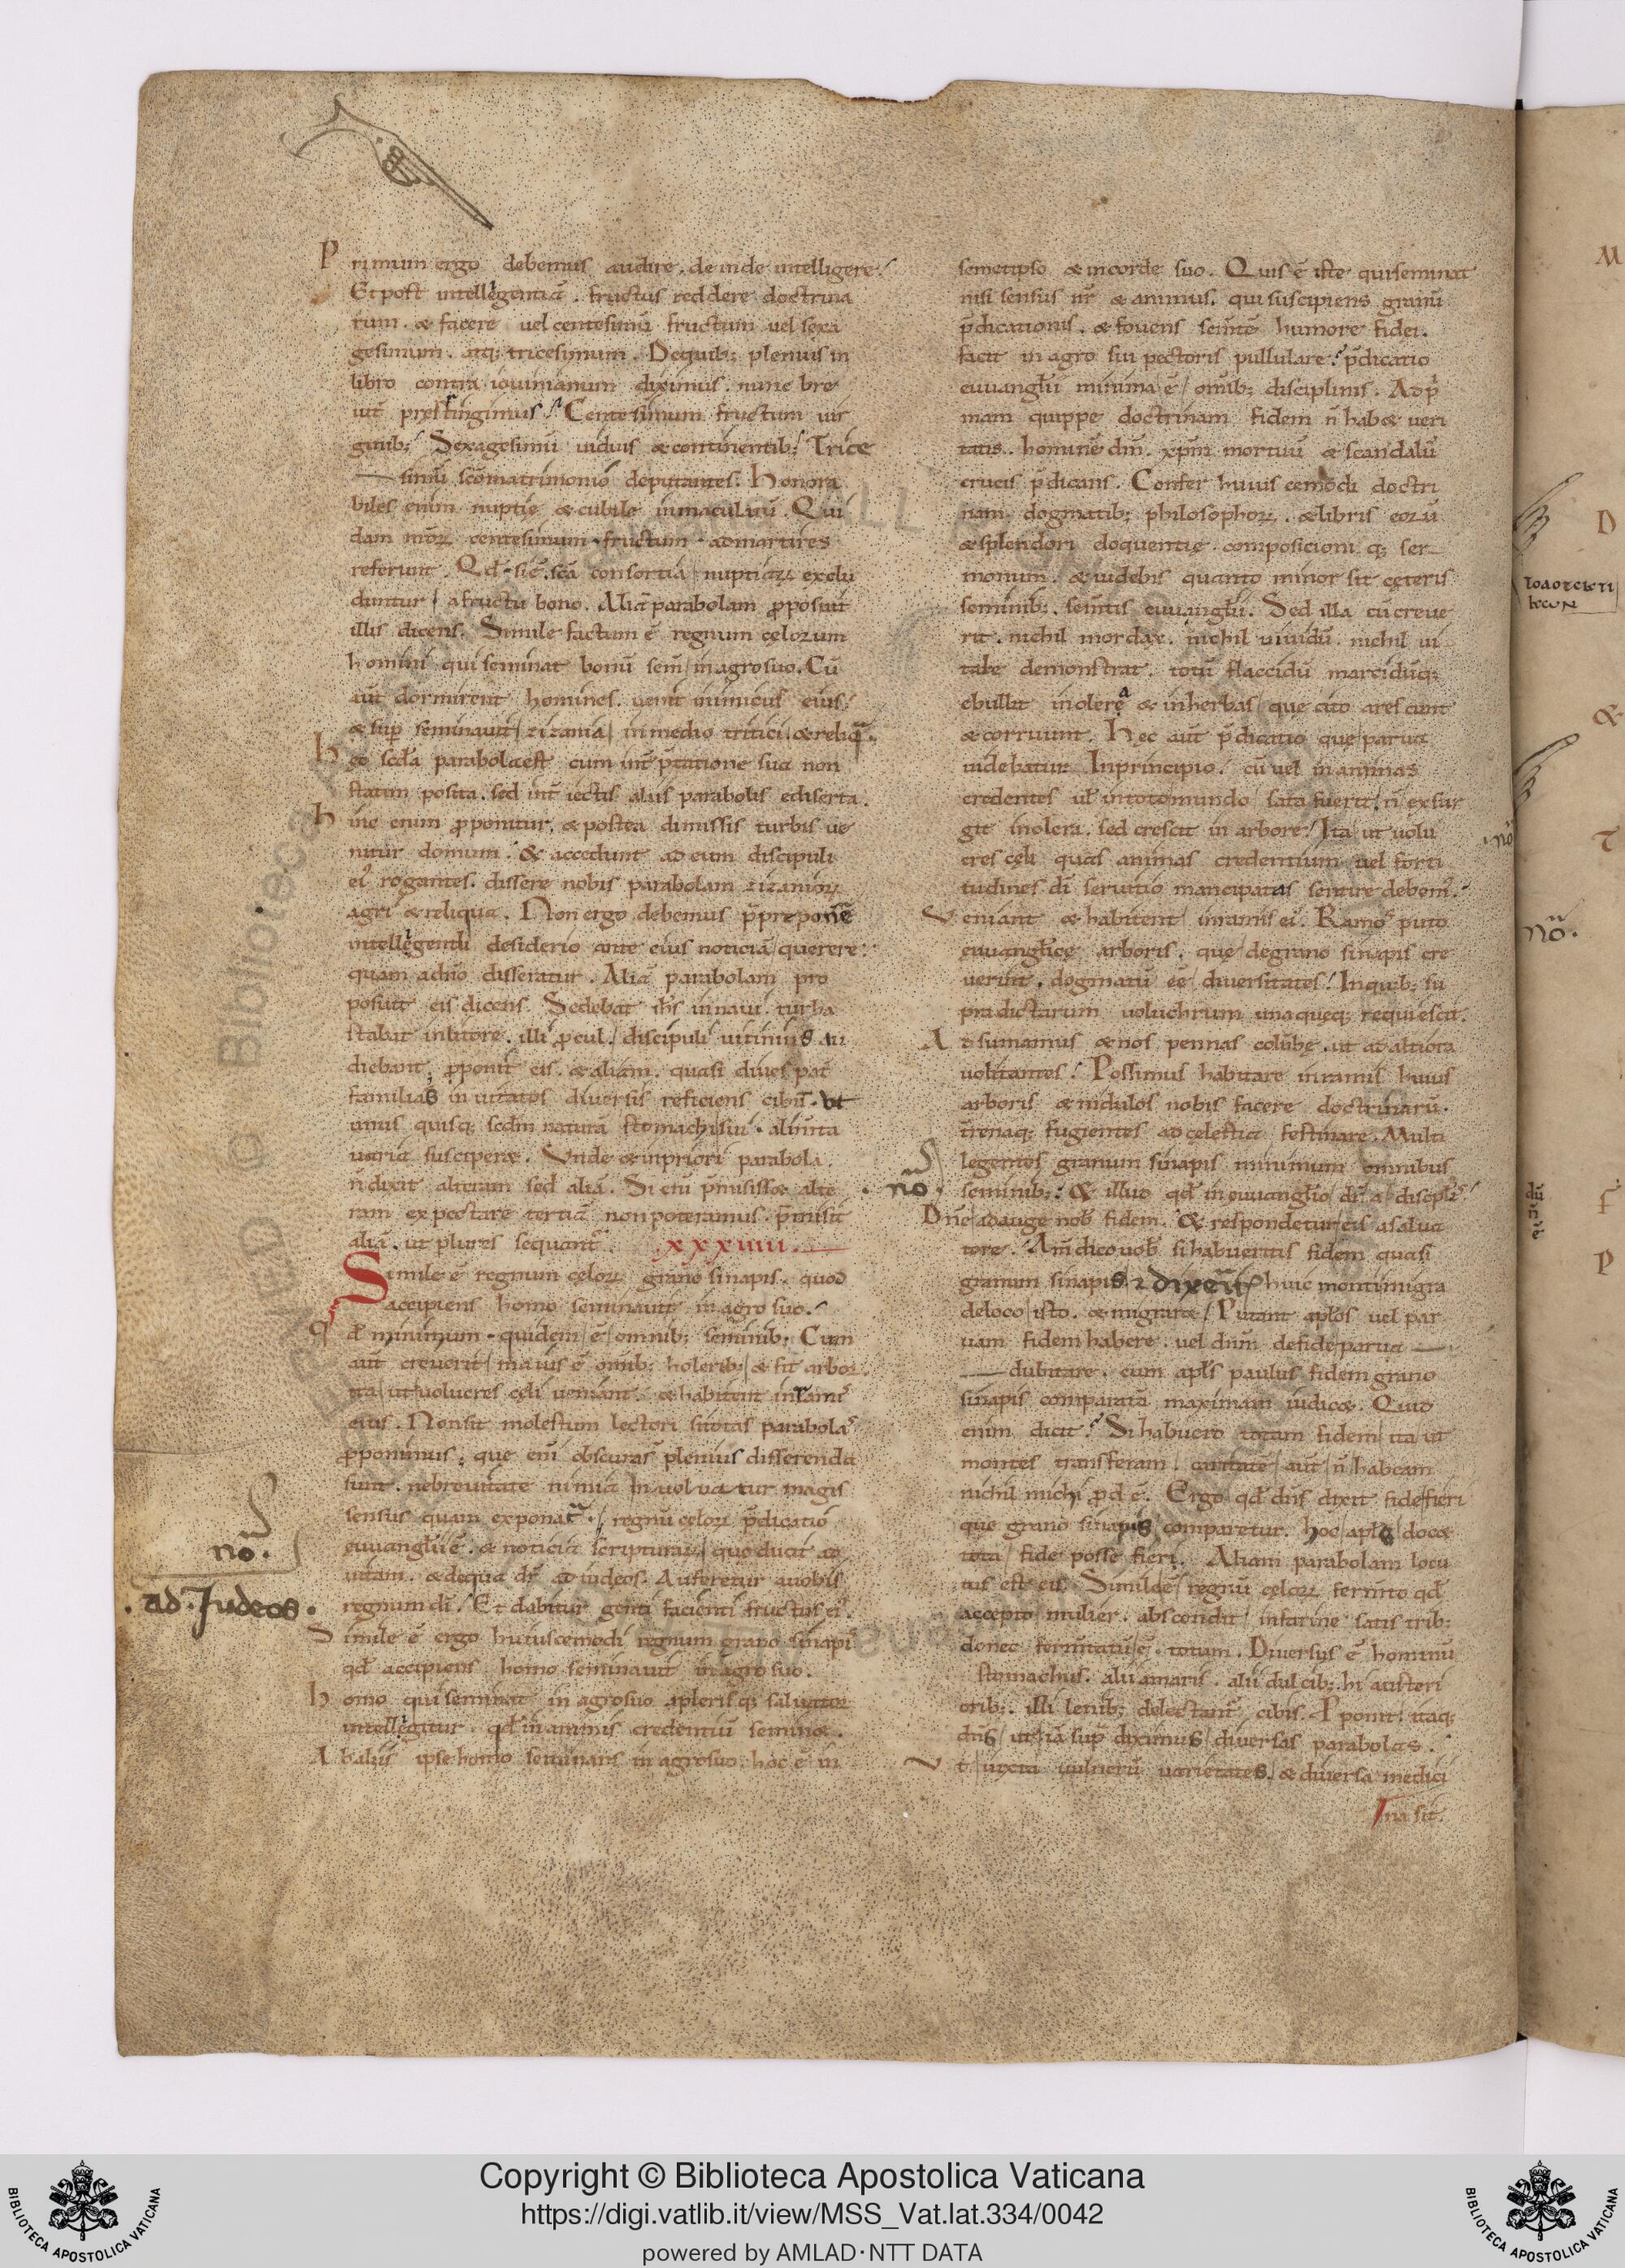 Primum ergo debemus audire. deinde intelligere.
Et post intelligentiā. fructus reddere doctrina
rum. & facere vel centesimū fructum vel sexa
gesimum. atq; tricesimum. De quib; plenius in
libro contra iovinianum diximus. nunc bre
vit̄ prestringimus. Centesimum fructum vir
ginib; Sexagesimū viduis & continentib; Trice
simū sc̄o matrimonio deputantes. Honora
biles enim nuptię & cubile inmaculatū. Qui
dam nr̄oꝝ centesimum fructum ad martires
referunt. Qd̄ si ē. sc̄a consortia nuptiaꝝ exclu
duntur a fructu bono. Aliā parabolam ꝓposuit
illis dicens. Simile factum ē regnum cęlorum
homini qui seminat bonū sem̄ in agro suo. Cū
aūt dormirent homines. venit inimicus eius.
& sup̄ seminavit zizania in medio tritici & reliq̄.
Hęc scd̄a parabola est cum int̄p̄tatione sua non
statim posita. sed int̄iectis aliis parabolis ediserta.
Hinc enim ꝓponitur. & postea dimissis turbis ve
nitur domum. & accedunt ad eum discipuli
ei' rogantes. dissere nobis parabolam zizanioꝝ
agri & reliqua. Non ergo debemus p̄prepon̄e
intelligendi desiderio ante eius noticiā querere
quam ad nō disseratur. Aliā parabolam pro
posuit eis dicens. Sedebat ih̄s in navi. turba
stabat in litore. illi ꝓcul. discipuli vicinius au
diebant. ꝓponit eis. & aliam. quasi dives pat̄
familias invitatos diversis reficiens cibis. ut
unus quisq; scd̄m naturā stomachi sui. alimta
varia susciperet. Unde & in priori parabola.
n̄ dixit alteram sed aliā. Si enī p̄misisset alte
ram expectare tertiā non poteramus. p̄misit
aliā. ut plures sequant̄. xxxiiii.
Simile ē regnum cęloꝝ grano sinapis. quod
accipiens homo seminavit in agro suo.
qd̄ minimum quidem ē omnib; seminib; Cum
aūt creverit maius ē omīb; holerib; & fit arbor.
ita ut volucres cęli veniant. & habitent in ramis
eius. Non sit molestum lectori si totas parabola's
ꝓponimus. que enī obscuras plenius disserenda
sunt. ne brevitate nimia involvatur magis
sensus quam exponat̄. regnū celoꝝ p̄dicatio
euuanglii ē. & noticia scripturaꝝ que ducit ad
vitam. & de qua dr̄ ad iudeos. Auferetur a vobis
regnum dī. Et dabitur genti facienti fructus ei'.
Simile ē ergo huiuscemodi regnum grano sinapi's
qd̄ accipiens homo seminavit in agro suo.
Homo qui seminat in agro suo a plerisq; salvator
intelligitur. qd̄ in animis credentiū seminet.
Ab aliis ipse homo seminans in agro suo. hoc ē in
no.
ad Judeos.
semetipso & in corde suo. Quis ē iste qui seminat
nisi sensus nr̄ & animus. qui suscipiens granū
p̄dicationis. & fovens sem̄tē humore fidei.
facit in agro sui pectoris pullulare. p̄dicatio
euuangłii minima ē omīb; disciplinis. Ad pri
mam quippe doctrinam fidem n̄ habet veri
tatis. hominē dm̄. xp̄m mortuū & scandalū
crucis p̄dicans. Confer huiuscemodi doctri
nam dogmatib; philosophoꝝ. & libris eorū
& splendori eloquentię composicioni q; ser
monum. & videbis quanto minor sit cęteris
seminib;. sem̄tis euuangłii. Sed illa cū creve
rit. nichil mordax. nichil vividū. nichil vi
tale demonstrat. totū flaccidū marcidūq;
ebullit in olera & in herbas que cito arescunt
& corruunt. Hęc aūt p̄dicatio que parva
videbatur In principio. cū vel in animas
credentes ul̄ in toto mundo sata fuerit. n̄ exsur
git in olera. sed crescit in arbore. Ita ut volu
cres cęli quas animas credentium vel forti
tudines dī servitio mancipatas sentire debem'.
Veniant & habitent in ramis ei'. Ramos puto
euuangłicę arboris. que de grano sinapis cre
verint. dogmatū eē diversitates. In quib; su
pradictarum voluchrum unaqueq; requiescit.
Adsumamus & nos pennas colūbę. ut ad altiora
volitantes. Possimus habitare in ramis huius
arboris & nidulos nobis facere doctrinarū.
t̄renaq; fugientes ad celestia festinare. Multi
no. legentes granum sinapis minimum omnibus
seminib;. & illud qd̄ in euuangłio dr̄ a discipl̄is.
Dn̄e adauge nob̄ fidem. & respondetur eis a salva
tore. Am̄ dico vob̄ si habueritis fidem quasi
granum sinapis & dixerit̄ huic monti migra
de loco isto. & migraret. Putant apl̄os vel par
vam fidem habere. vel dn̄m de fide parva
dubitare. cum apl̄s paulus fidem grano
sinapis comparatā maximam iudicet. Quid
enim dicit. Si habuero totam fidem ita ut
montes transferam caritatē aūt n̄ habeam
nichil michi ꝓd ē. Ergo qd̄ dn̄s dixit fide fieri
que grano sinapis comparetur. hoc apl̄s docet
tota fide posse fieri. Aliam parabolam locu
tus est eis. Simile ē regnū cęloꝝ fermto qd̄
accepto mulier. abscondit in farine satis trib;
donec fermtatū ē totum. Diversus ē hominū
stomachus. alii amaris. alii dulcib;. hi austeri
orib;. illi lenib; delectant̄ cibis. Ponit itaq;
dn̄s ut iā sup̄ diximus diversas parabolas.
Ut iuxta vulnerū varietates. & diversa medici
na sit.
Copyright © Biblioteca Apostolica Vaticana
https://digi.vatlib.it/view/MSS_Vat.lat.334/0042
powered by AMLAD·NTT DATA
BIBLIOTECA APOSTOLICA VATICANA
BIBLIOTECA APOSTOLICA VATICANA